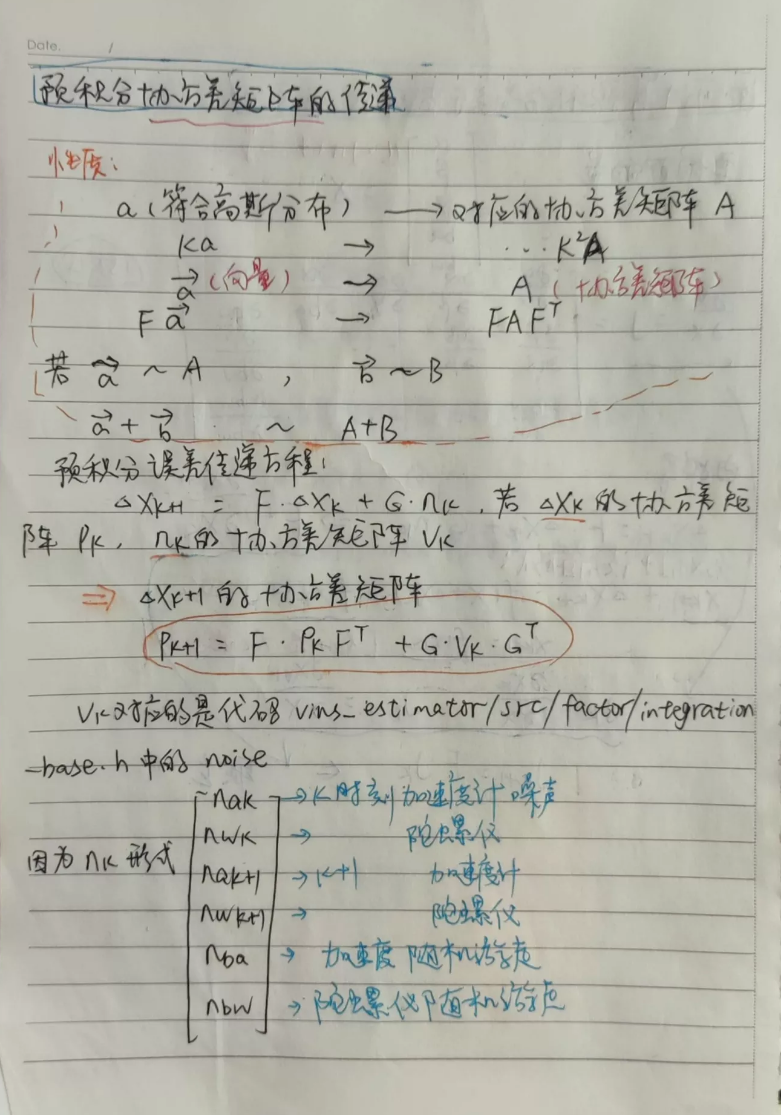 Date. /
预积分协方差矩阵的传递
性质:
a (符合高斯分布) → 对应的协方差矩阵 A
Ka → ... K²A
a⃗ (向量) → A (协方差矩阵)
F a⃗ → FAFᵀ
若 a⃗ ~ A , b⃗ ~ B
a⃗ + b⃗ ~ A+B
预积分误差传递方程:
△Xk+1 = F·△Xk + G·nk, 若 △Xk 的协方差矩
阵 Pk, nk的协方差矩阵 Vk
⇒ △Xk+1 的协方差矩阵
Pk+1 = F·PkFᵀ + G·Vk·Gᵀ
Vk对应的是代码 vins_estimator/src/factor/integration
_base.h 中的 noise
nak → K时刻加速度计噪声
nwk → 陀螺仪
因为 nk 形式
nak+1 → K+1 加速度计
nwk+1 → 陀螺仪
nba → 加速度随机游走
nbw → 陀螺仪随机游走